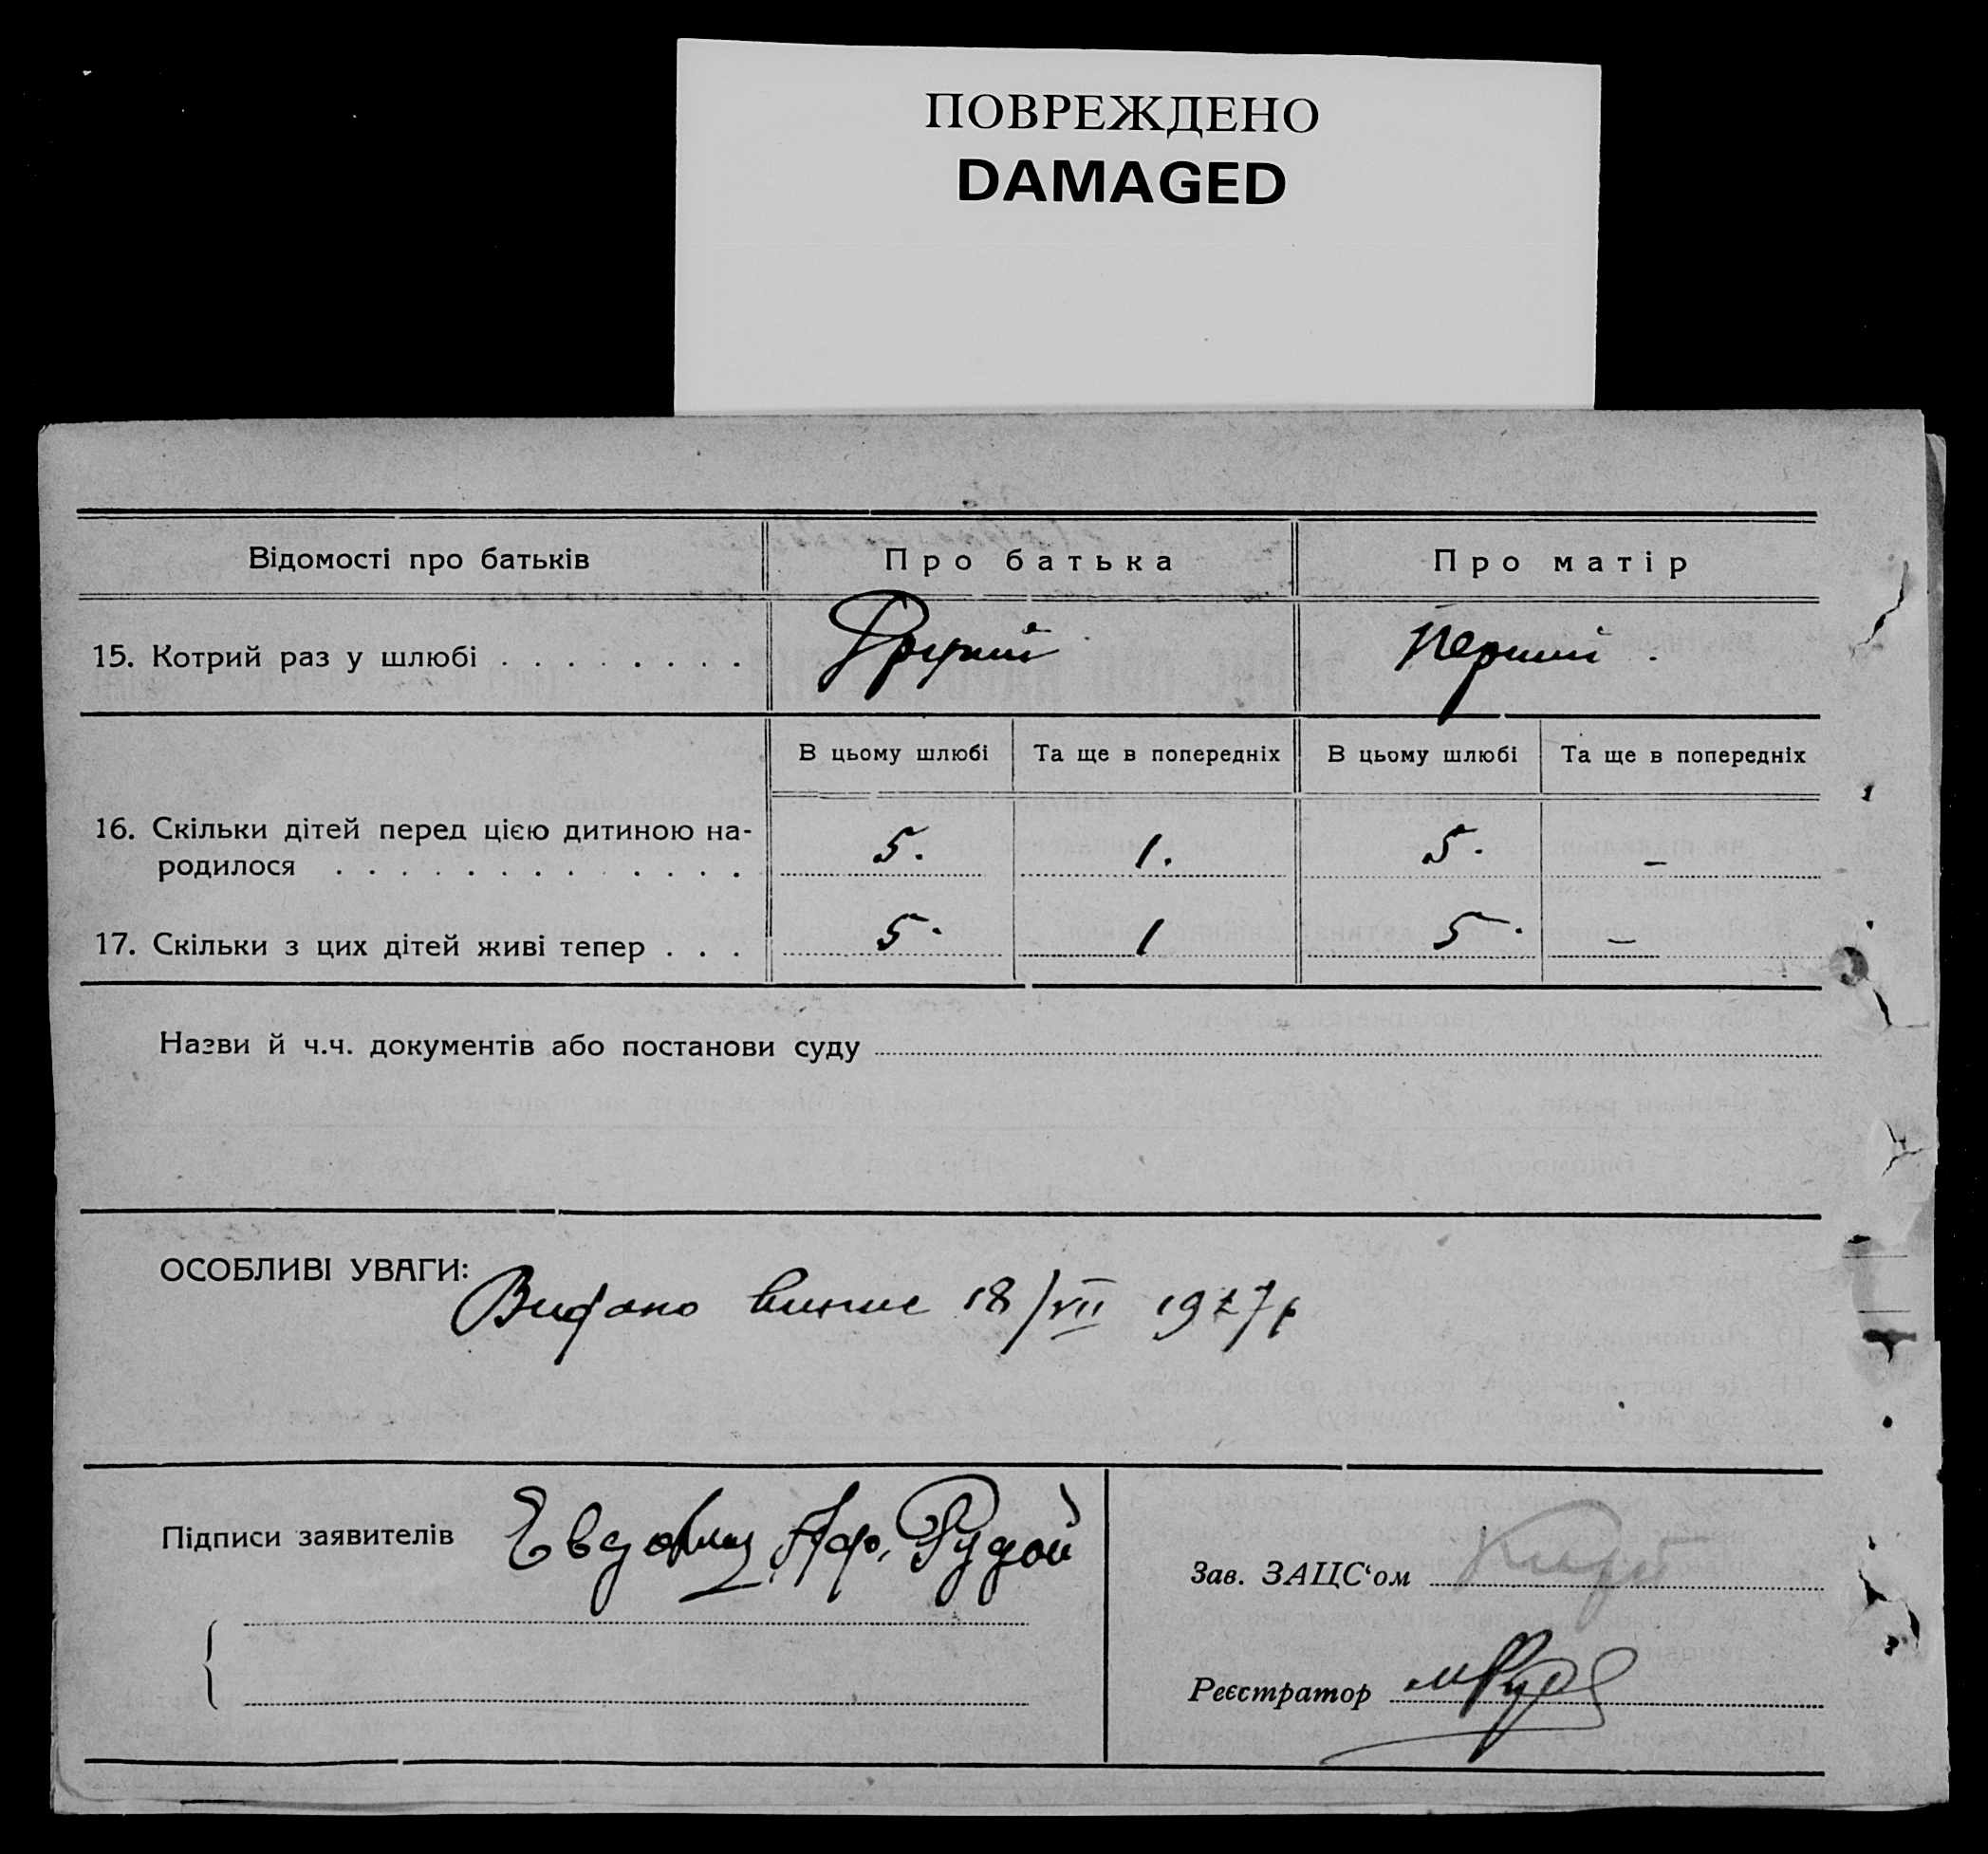 ПОВРЕЖДЕНО
DAMAGED
Відомості про батьків
Про батька
Про матір
15. Котрий раз у шлюбі . . . . . . . .
Другий
Перший .
В цьому шлюбі
Та ще в попередніх
В цьому шлюбі
Та ще в попередніх
16. Скільки дітей перед цією дитиною на-
родилося . . . . . . . . . . . . .
5.
1.
5.
–
17. Скільки з цих дітей живі тепер . . .
5.
1
5.
–
Назви й ч.ч. документів або постанови суду
ОСОБЛИВІ УВАГИ:
Видано випис 18/VII 1927 р
Підписи заявителів
Аф. Рудой
Зав. ЗАЦС‘ом
Реєстратор